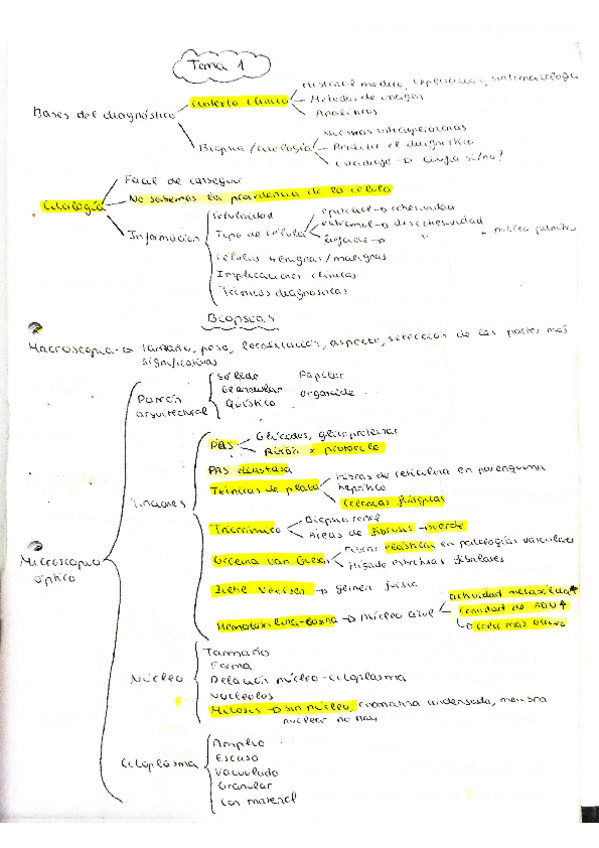 Tema 1
Historial médico, exploración, sintomatología
Bases del diagnóstico
Contexto clínico
Métodos de imagen
Analíticas
Muestras intraoperatorias
Biopsia / citología
Realizar el diagnóstico
Estadiaje → Cirugía sí/no?
Citología
Fácil de conseguir
No sabemos la procedencia de la célula
Información
Celularidad
Tipo de célula
epitelial → cohesividad
estromal → descohesividad
Células benignas/malignas
Implicaciones clínicas
Técnicas diagnósticas
Biopsias
Macroscopía → tamaño, peso, localización, aspecto, selección de las partes más
significativas
Microscopio
óptico
Patrón
arquitectural
Sólido
Papilar
Glandular
Organoide
Quístico
Tinciones
PAS
Glúcidos, glicoproteínas
Riñón x protocolo
PAS diastasa
Técnicas de plata
Fibras de reticulina en parénquima
hepático
Tricrómico
Biopsia renal
Áreas de fibrosis → verde
Orceína van Gieson
Fibras elásticas en patologías vasculares
Hígado estructuras fibrilares
Ziehl Neelsen →
Hematoxilina-eosina → núcleo azul
actividad metabólica ↑
cantidad de ADN ↑
→ color más oscuro
Núcleo
Tamaño
Forma
Relación núcleo-citoplasma
Nucleolos
Mitosis → sin núcleo, cromatina condensada, membrana
nuclear no hay
Citoplasma
Amplio
Escaso
Vacuolado
Granular
Con material